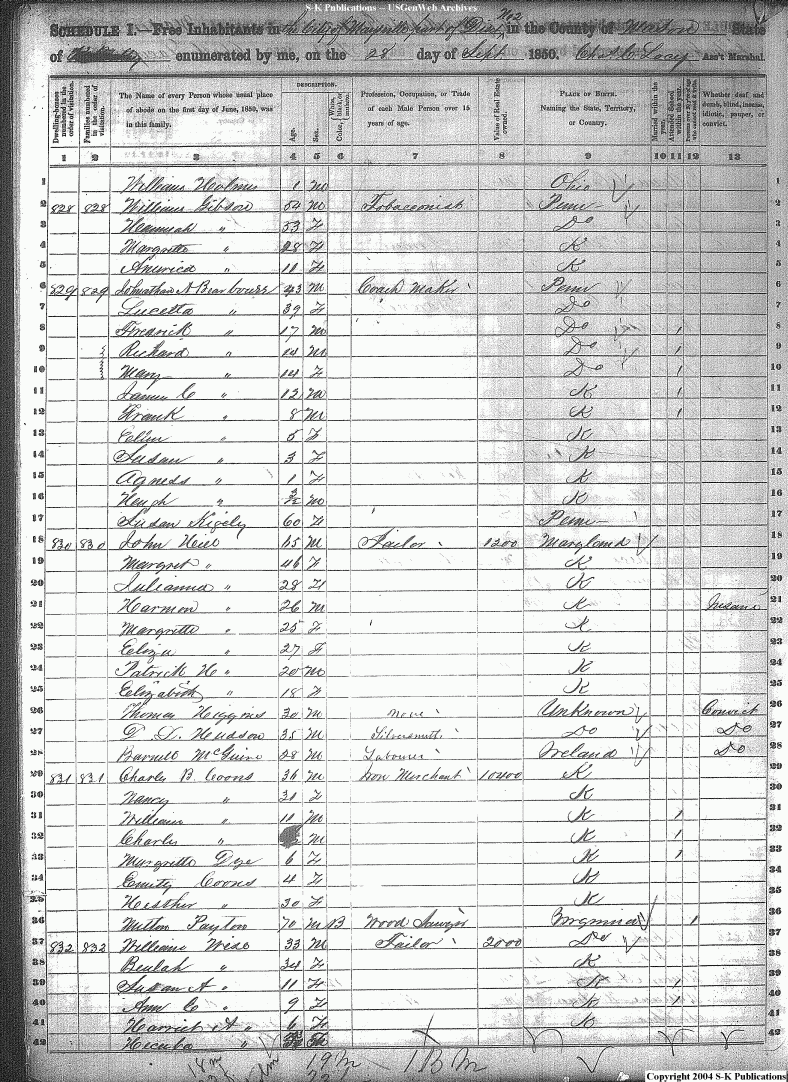 S-K Publications -- USGenWeb Archives
SCHEDULE I.—Free Inhabitants in the City of Maysville part of Dist No 2 in the County of Mason State
of enumerated by me, on the 28 day of Sept 1850. Ass't Marshal.
Dwelling-houses numbered in the order of visitation.
Families numbered in the order of visitation.
The Name of every Person whose usual place of abode on the first day of June, 1850, was in this family.
DESCRIPTION.
Age.
Sex.
Color, White, black, or mulatto.
Profession, Occupation, or Trade of each Male Person over 15 years of age.
Value of Real Estate owned.
PLACE OF BIRTH. Naming the State, Territory, or Country.
Married within the year.
Attended School within the year.
Persons over 20 y'rs of age who cannot read & write.
Whether deaf and dumb, blind, insane, idiotic, pauper, or convict.
1 2 3 4 5 6 7 8 9 10 11 12 13
1 William Holmes 1 m Ohio 1
2 828 828 William Gibson 54 m Tobacconist Penn 2
3 Hannah " 53 F Do 3
4 Margrette " 28 F K 4
5 America " 11 F K 5
6 829 829 Johnathan A 43 m Coach Maker Penn 6
7 Lucetta " 39 F Do 7
8 Fredrick " 17 m Do 1 8
9 Richard " 14 m Do 1 9
10 Mary " 14 F Do 1 10
11 James C " 12 m K 1 11
12 Frank " 8 m K 1 12
13 Ellen " 5 F K 13
14 Susan " 3 F K 14
15 Agness " 1 F K 15
16 Hugh " m K 16
17 Susan 60 F Penn 17
18 830 830 John m Tailor 1200 Maryland 18
19 Margret " 46 F K 19
20 Julianna " 28 F K 20
21 Harmon " 26 m K Insane 21
22 Margrette " 25 F K 22
23 Eliza " 27 F K 23
24 Patrick H " 20 m K 24
25 Elizabeth " 18 F K 25
26 Thomas Higgins 30 m none Unknown Convict 26
27 Hudson 35 m Silversmith Do Do 27
28 McGuire 28 m Labourer Ireland Do 28
29 831 831 Charles B Coons 36 m Merchant K 29
30 Nancy " 31 F K 30
31 William " 11 m K 1 31
32 Charles " m K 1 32
33 Margrette Dye 6 F K 1 33
34 Emily Coons 4 F K 34
35 Hesther " 30 F K 35
36 Milton Payton 70 m B Wood 1 36
37 832 832 William Wise 33 m Tailor 2000 Do 37
38 Beulah " 34 F K 38
39 Susan A " 11 F K 1 39
40 Ann C " 9 F K 1 40
41 Harriet A " 6 F K 41
42 Hecuba " 42
18 m 19 m 1 B m
Copyright 2004 S-K Publications